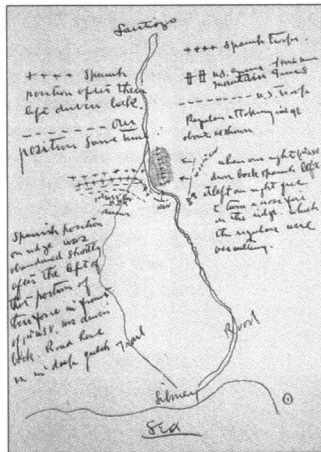 Santiago
++++ Spanish
position after their
left driven back.
------ Our
position same time
++++ Spanish troops.
U.S. guns - four
mountain guns
------- U.S. Troops
Regulars attacking ridge
about as shown
when our right
drove back Spanish left
it left on right
to turn a
in the ridge, which
the regulars were
assaulting.
Spanish position
on ridge was
abandoned shortly
after the left of
that portion of
their force in front
of was driven
back. Road here
in deep gulch
Trail
Road
Siboney
Sea